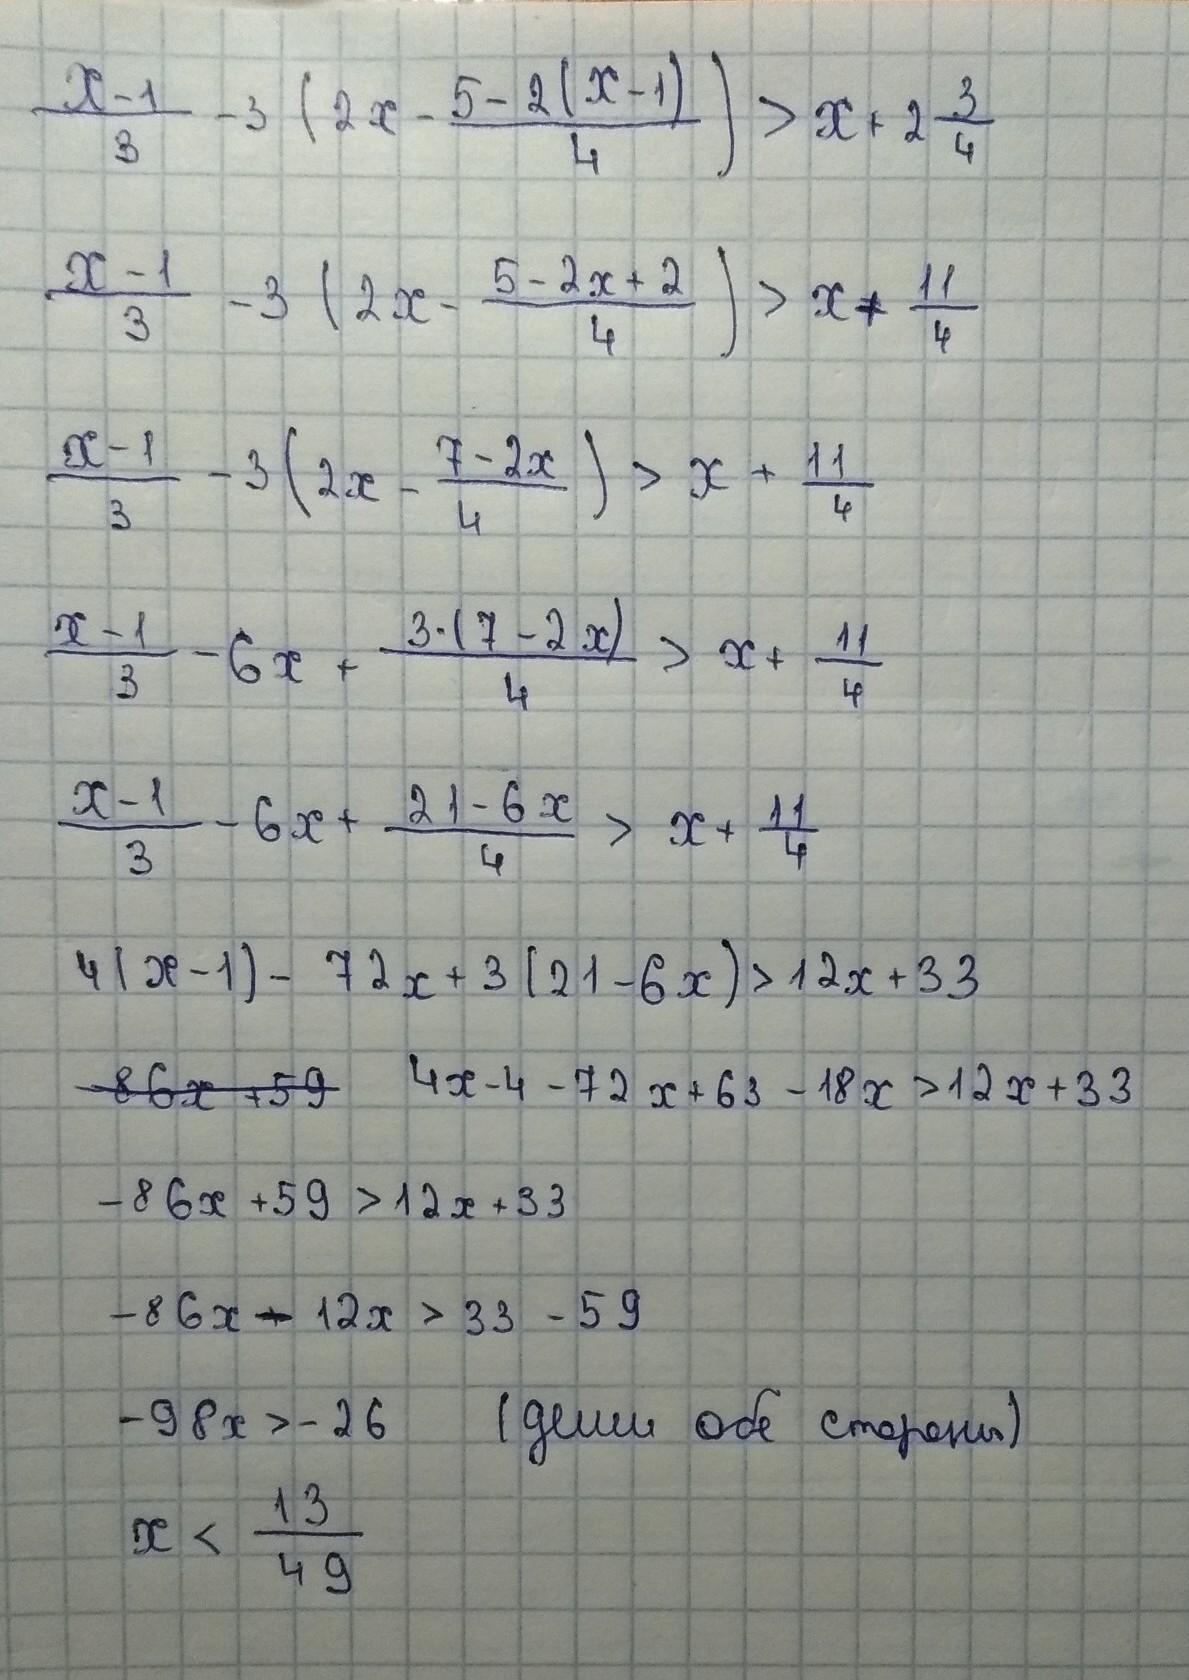 (x-1)/3 -3 (2x - (5-2(x-1))/4) > x + 2 3/4
(x-1)/3 -3 (2x - (5-2x+2)/4) > x + 11/4
(x-1)/3 -3 (2x - (7-2x)/4) > x + 11/4
(x-1)/3 -6x + (3·(7-2x))/4 > x + 11/4
(x-1)/3 -6x + (21-6x)/4 > x + 11/4
4(x-1) - 72x + 3(21-6x) > 12x + 33
-86x +59 4x-4-72x+63-18x > 12x+33
-86x +59 > 12x+33
-86x - 12x > 33 - 59
-98x > -26 (делим обе стороны)
x < 13/49